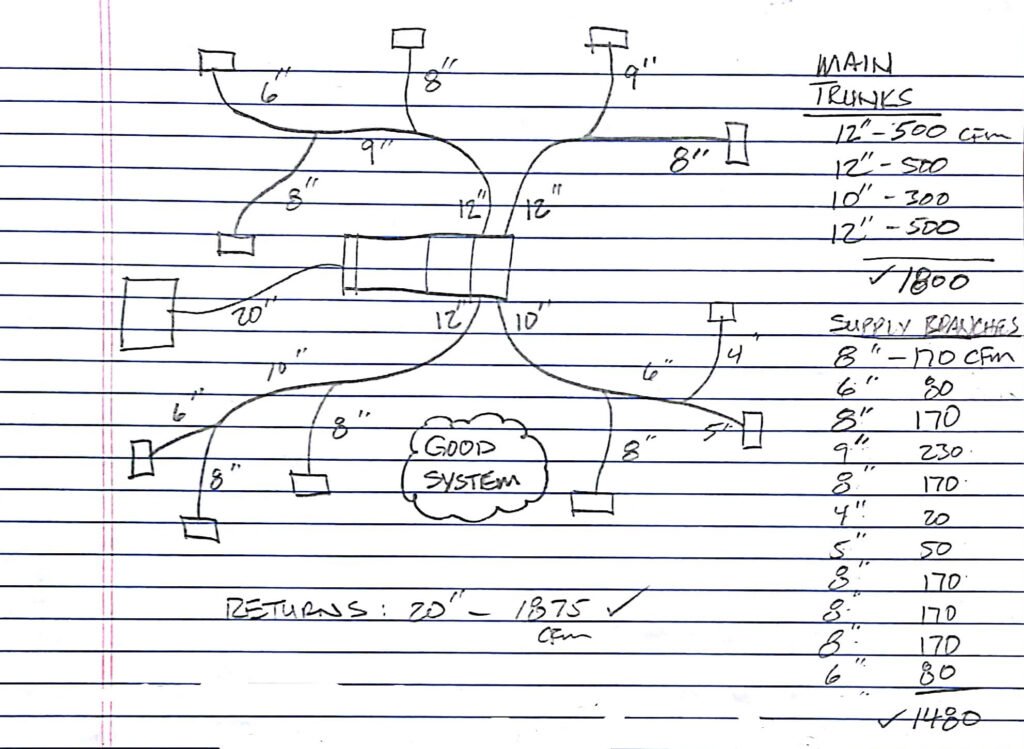 6"
8"
9"
9"
8"
8"
12"
12"
20"
12"
10"
10"
6"
4"
6"
8"
5"
8"
8"
GOOD
SYSTEM
RETURNS: 20" - 1875 ✓
CFM
MAIN
TRUNKS
12" - 500 CFM
12" - 500
10" - 300
12" - 500
✓ 1800
SUPPLY BRANCHES
8" - 170 CFM
6" 80
8" 170
9" 230
8" 170
4" 20
5" 50
8" 170
8" 170
8" 170
6" 80
✓ 1480